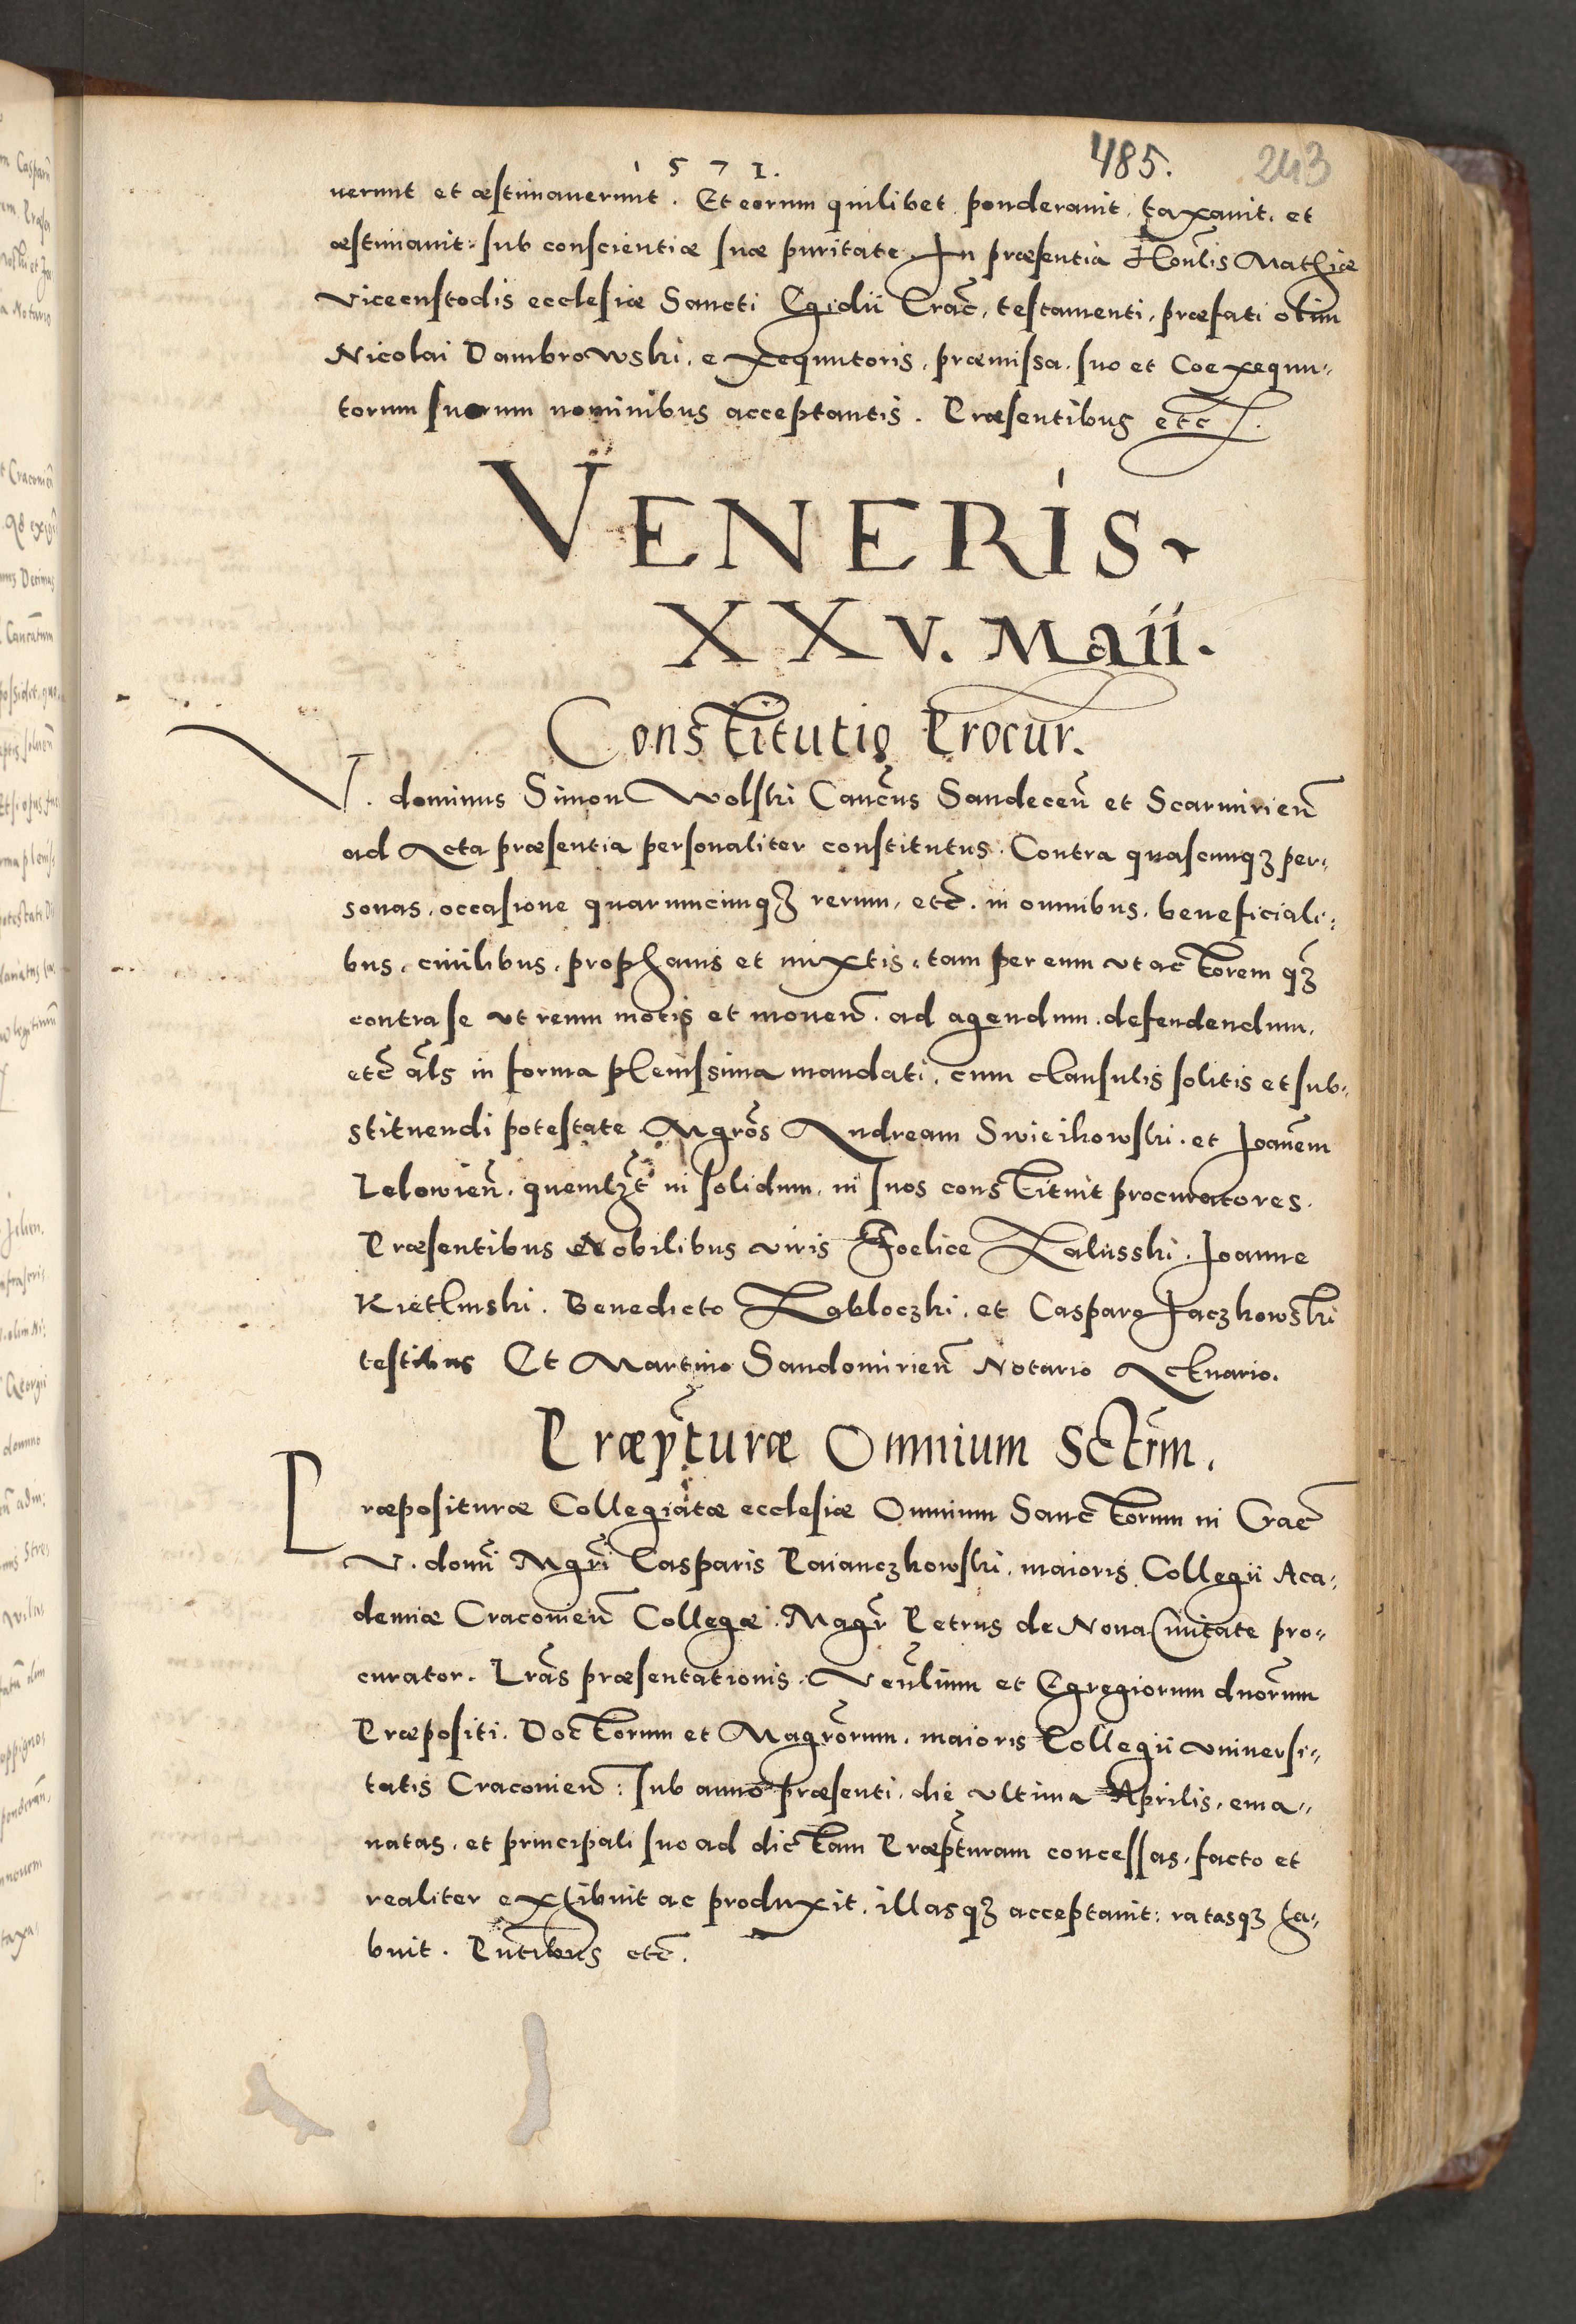 1571.
485. 243
uerunt et æstimauerunt. Et eorum quilibet ponderauit, taxauit, et
æstimauit, sub conscientiæ suæ puritate. In præsentia Honlis Mathiæ
Vicecustodis ecclesiæ Sancti Egidii Crac, testamenti, præfati olim
Nicolai Dambrowski, exequutoris, præmissa, suo et Coexequu-
torum suorum nominibus acceptantis. Præsentibus etc.
VENERIS
XXV. Maii.
Constitutio Procur.
V. dominus Simon Wolski Cancus Sandeceñ et Scarmirieñ
ad Acta præsentia personaliter constitutus. Contra quascunqꝫ per-
sonas, occasione quarumcunqꝫ rerum, etc. in omnibus, beneficiali-
bus, ciuilibus, prophanis et mixtis, tam per eum vt actorem qꝫ
contra se vt reum motis et moueñ. ad agendum, defendendum,
etc als in forma plenissima mandati, cum clausulis solitis et sub-
stituendi potestate. Mgros Andream Swieikowski, et Joanem
Lelowieñ, quemlꝫt in solidum, in suos constituit procuratores.
Præsentibus Nobilibus viris Foelice Zalusski, Joanne
Kietlinski, Benedicto Zabloczki, et Casparo Jaczkowski
testibus Et Martino Sandomirieñ Notario Actuario.
Præpturæ Omnium Sctrm.
Præposituræ Collegiatæ ecclesiæ Omnium Sanctorum in Crac
V. domi Mgri Casparis Paianczkowski, maioris Collegii Aca-
demiæ Cracouieñ Collegæ. Magr Petrus de Noua Ciuitate pro-
curator. Lras præsentationis. Veñlium et Egregiorum dnorum
Præpositi. Doctorum et Magrorum, maioris Collegii vniuersi-
tatis Cracouieñ: sub anno præsenti, die vltima Aprilis, ema-
natas, et principali suo ad dictam Præpturam concessas, facto et
realiter exhibuit ac produxit, illasqꝫ acceptauit: ratasqꝫ ha-
buit. Pntibus etc.